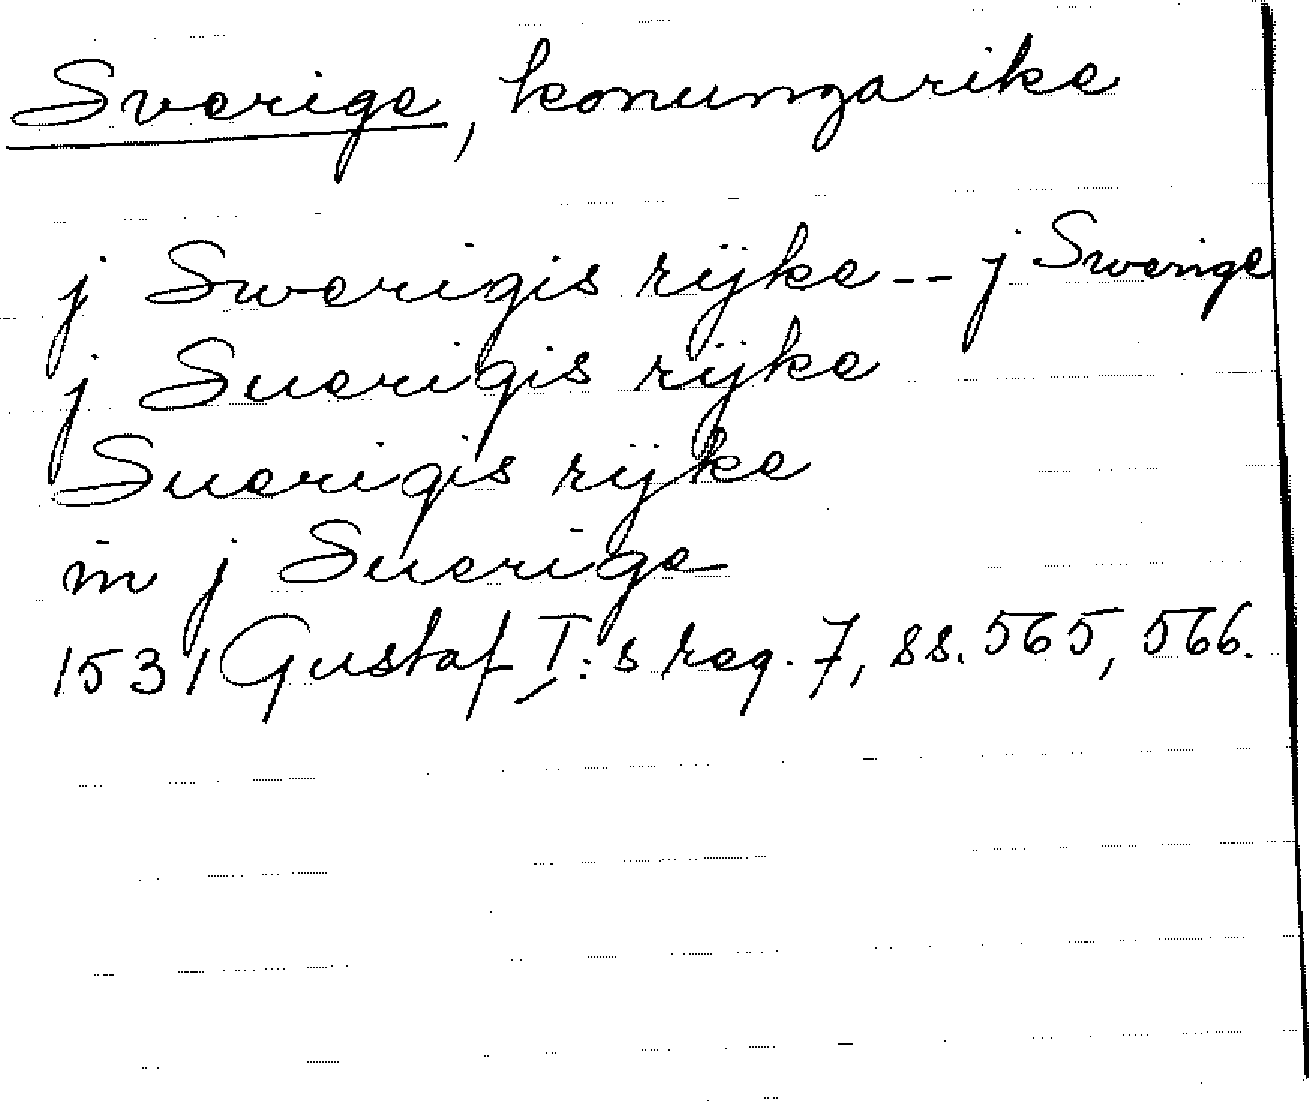 Sverige, konungarike
j Swerigis rijke -- j Swerige
j Suerigis rijke
Suerigis rijke
in j Suerige
1531 Gustaf I:s reg. 7, ss. 565, 566.